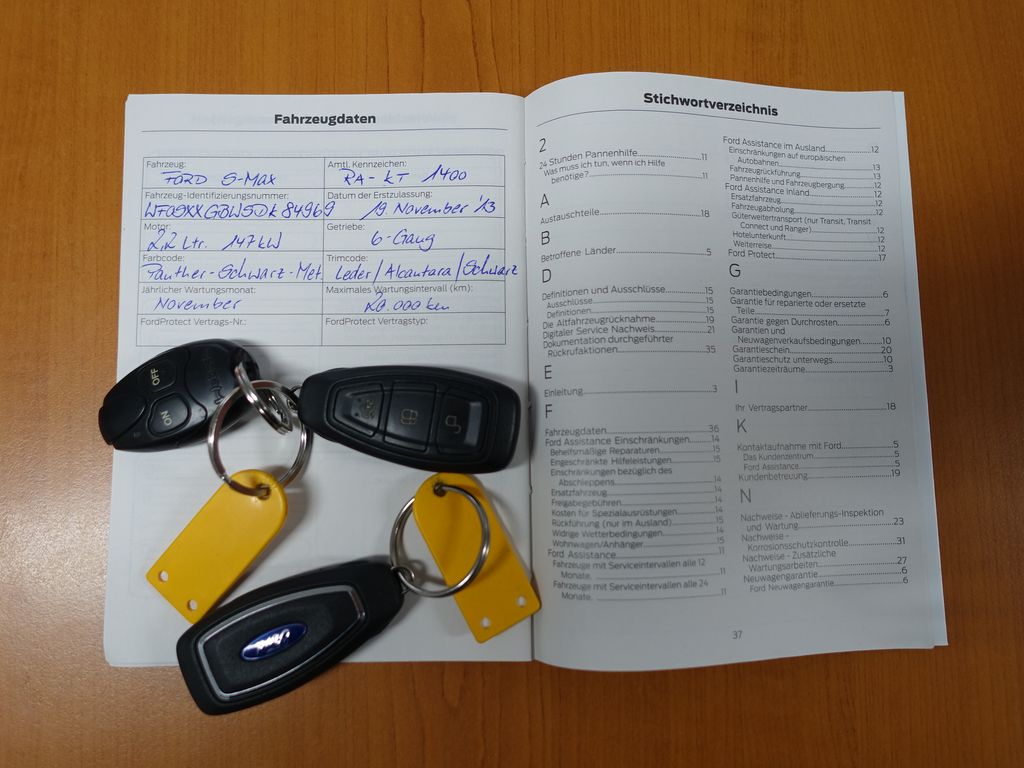 Fahrzeugdaten
Fahrzeug:
FORD S-Max
Amtl. Kennzeichen:
RA-KT 1400
Fahrzeug-Identifizierungsnummer:
WF0SXXGBWSDK84969
Datum der Erstzulassung:
19. November '13
Motor:
2,2 Ltr. 147kW
Getriebe:
6-Gang
Farbcode:
Panther-Schwarz-Met.
Trimcode:
Leder/Alcantara/Schwarz
Jährlicher Wartungsmonat:
November
Maximales Wartungsintervall (km):
20.000 km
FordProtect Vertrags-Nr.:
FordProtect Vertragstyp:
OFF
ON
Ford
Stichwortverzeichnis
2
24 Stunden Pannenhilfe 11
Was muss ich tun, wenn ich Hilfe
benötige? 11
A
Austauschteile 18
B
Betroffene Länder 5
D
Definitionen und Ausschlüsse 15
Ausschlüsse 15
Definitionen 15
Die Altfahrzeugrücknahme 19
Digitaler Service Nachweis 21
Dokumentation durchgeführter
Rückrufaktionen 35
E
Einleitung 3
F
Fahrzeugdaten 36
Ford Assistance Einschränkungen 14
Behelfsmäßige Reparaturen 15
Eingeschränkte Hilfeleistungen 15
Einschränkungen bezüglich des
Abschleppens 14
Ersatzfahrzeug 14
Freigabegebühren 14
Kosten für Spezialausrüstungen 14
Rückführung (nur im Ausland) 15
Widrige Wetterbedingungen 14
Wohnwagen/Anhänger 15
Ford Assistance 11
Fahrzeuge mit Serviceintervallen alle 12
Monate. 11
Fahrzeuge mit Serviceintervallen alle 24
Monate. 11
Ford Assistance im Ausland 12
Einschränkungen auf europäischen
Autobahnen 13
Fahrzeugrückführung 12
Pannenhilfe und Fahrzeugbergung 12
Ford Assistance Inland 12
Ersatzfahrzeug 12
Fahrzeugabholung 12
Güterweitertransport (nur Transit, Transit
Connect und Ranger) 12
Hotelunterkunft 12
Weiterreise 12
Ford Protect 17
G
Garantiebedingungen 6
Garantie für reparierte oder ersetzte
Teile 7
Garantie gegen Durchrosten 6
Garantien und
Neuwagenverkaufsbedingungen 10
Garantieschein 20
Garantieschutz unterwegs 10
Garantiezeiträume 3
I
Ihr Vertragspartner 18
K
Kontaktaufnahme mit Ford 5
Das Kundenzentrum 5
Ford Assistance 5
Kundenbetreuung 19
N
Nachweise - Ablieferungs-Inspektion
und Wartung 23
Nachweise -
Korrosionsschutzkontrolle 31
Nachweise - Zusätzliche
Wartungsarbeiten 27
Neuwagengarantie 6
Ford Neuwagengarantie 6
37